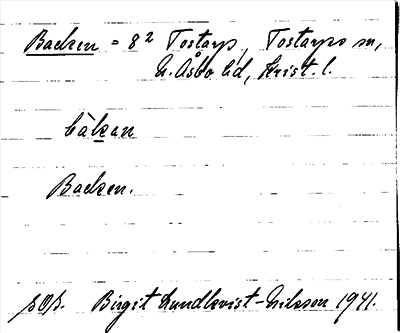 Backen = 8² Tostarp, Tostarps sn,
N. Åsbo hd, Krist. l.
bàkan
Backen.
sOs. Birgit Lundkvist-Nilsson 1941.